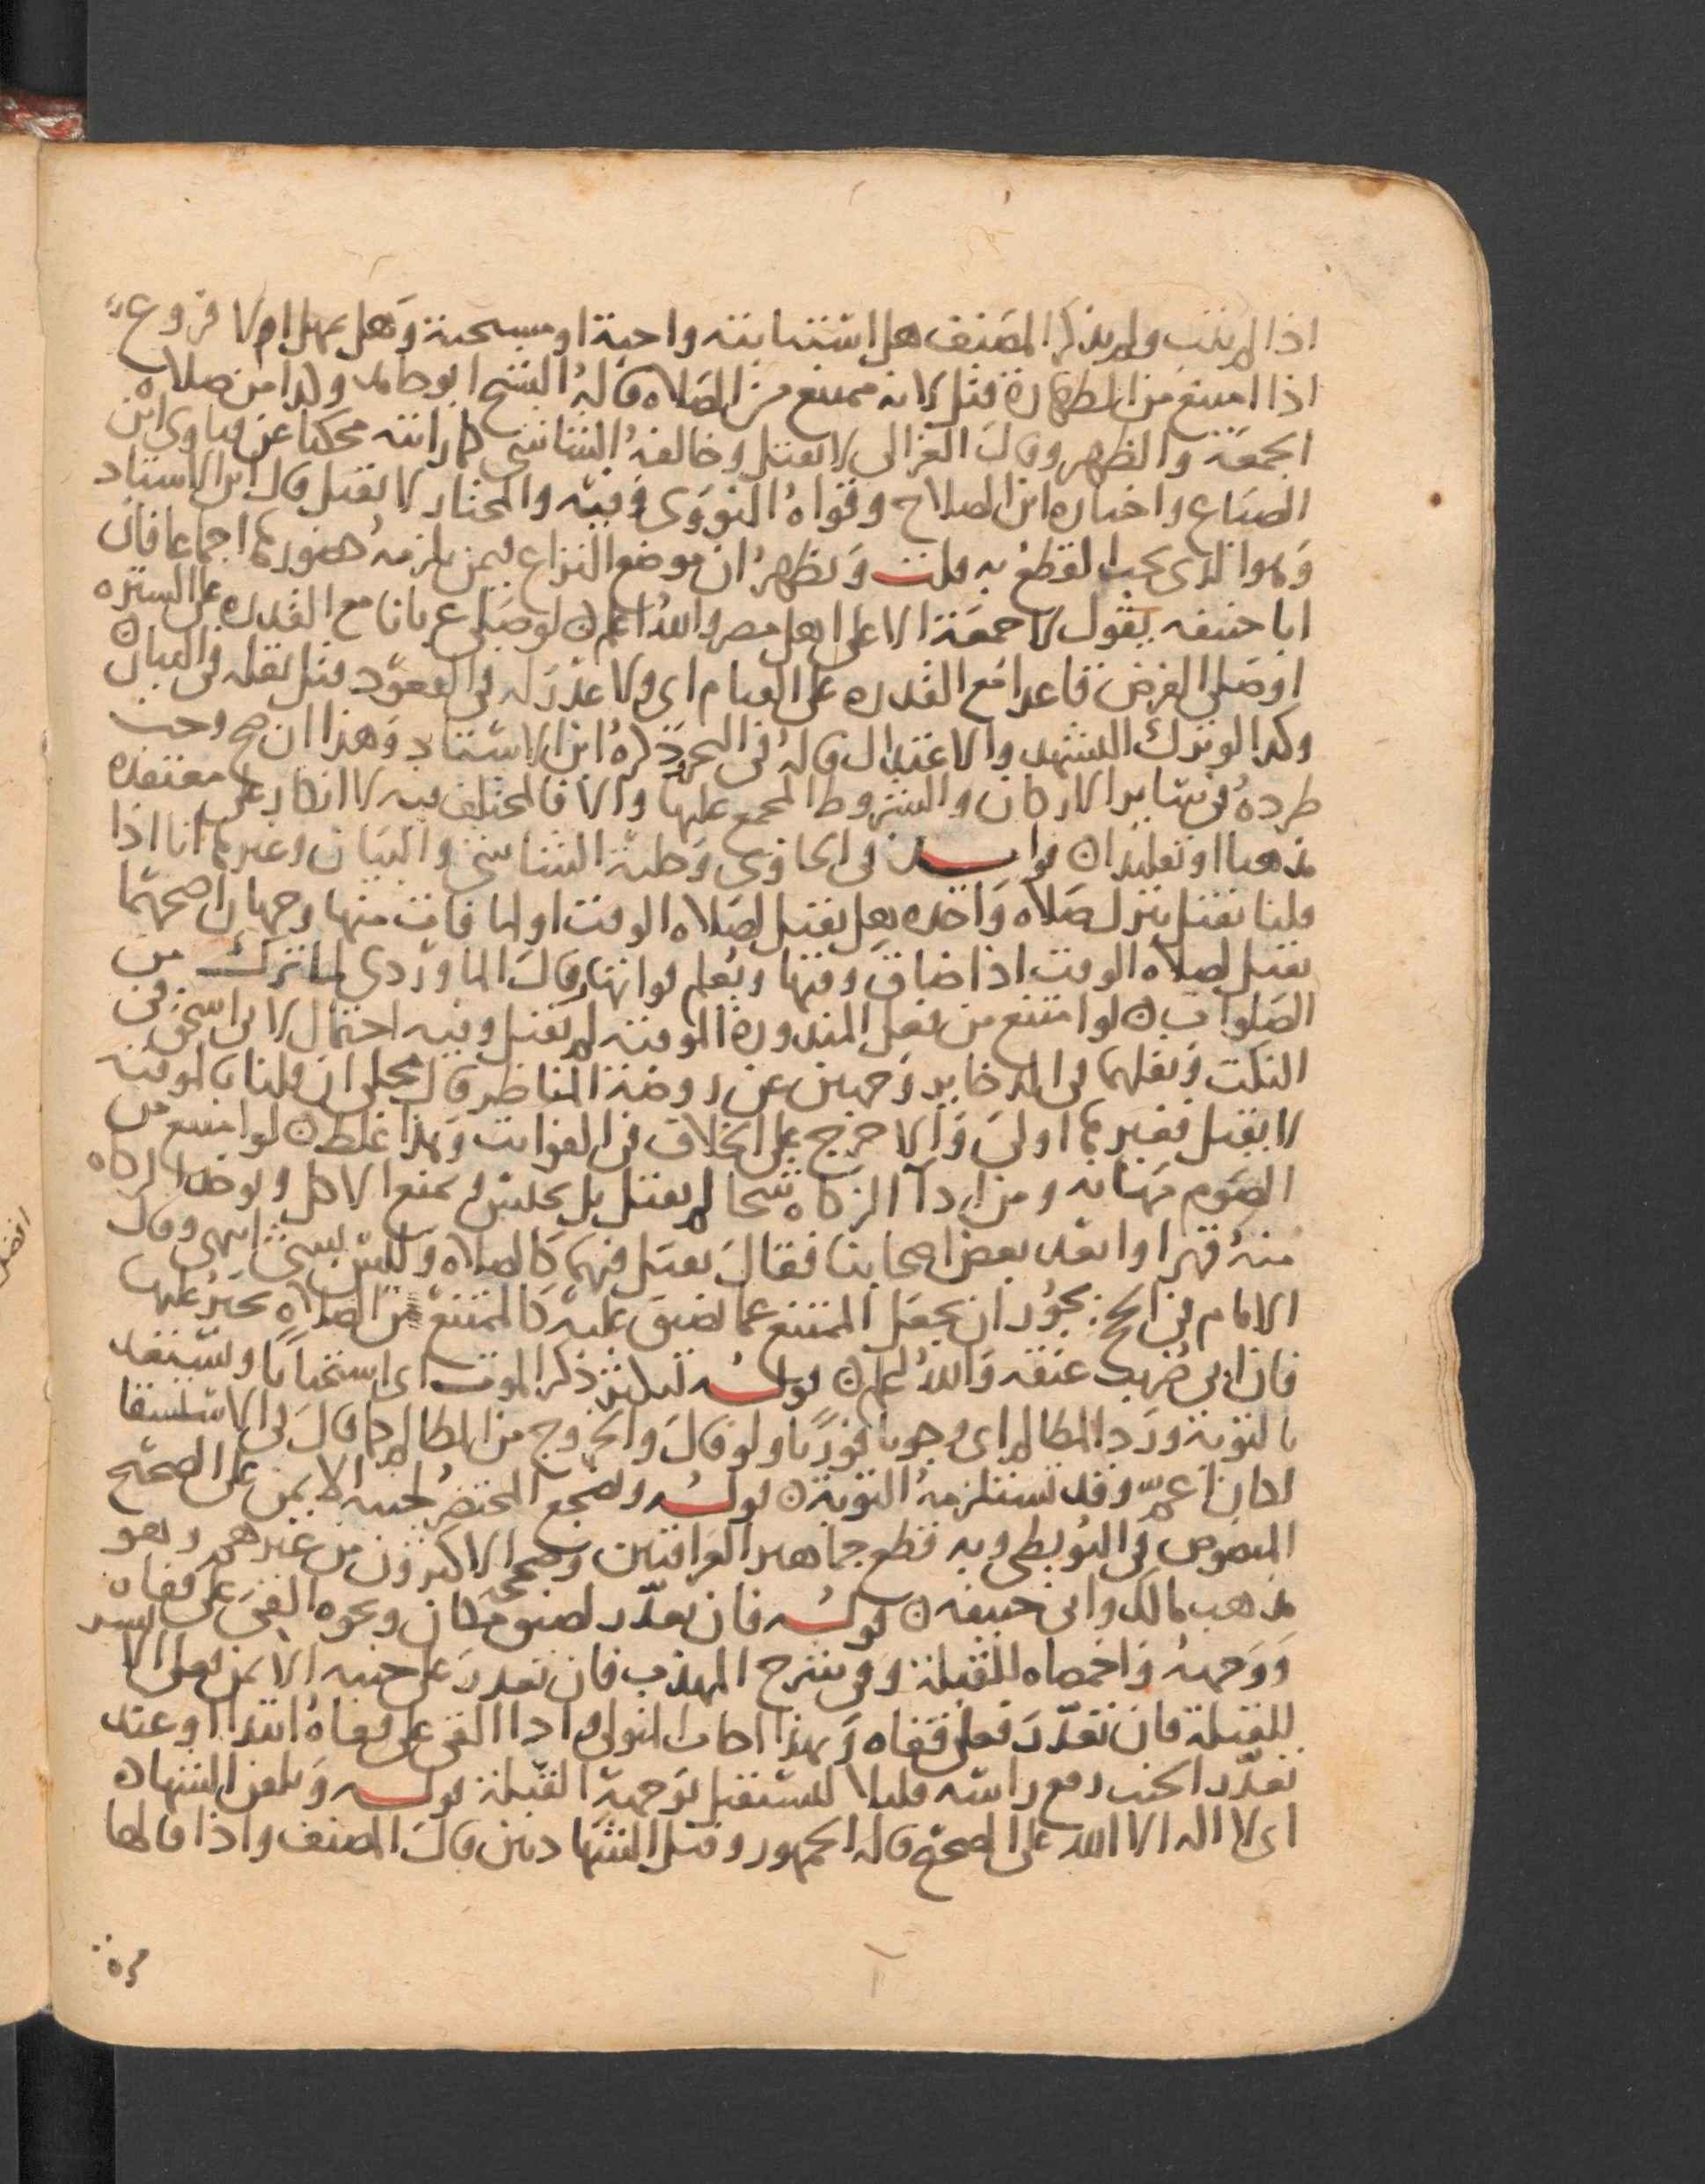 اذا لم يتب ولم يذكر المصنف هل استتابته واجبة او مستحبة وهل يمهل ام لا فروع
اذا امتنع من الطهارة قتل لانه ممتنع من الصلاه قاله الشيخ ابو حامد ولو امتنع من صلاه
الجمعة والظهر وقال الغزالى لا يقتل وخالفه الشاشى كما رايته محكيا عن فتاوى ابن
الصباغ واختاره ابن الصلاح وقواه النووى وفيه والمختار لا يقتل قال ابن الاستاد
وهوا الذى يجب القطع به قلت ويظهر ان موضع النزاع فيمن يلزمه حضورها اجماعا فان
ابا حنيفه يقول لا جمعة الا على اهل مصر والله اعلم ن لو صلى عريانا مع القدره على الستره
او صلى الفرض قاعدا مع القدره على القيام اى ولا عذر له فى القعود قتل نقله فى البيان
وكذا لو ترك التشهد والاعتدال قاله فى البحر ذكره ابن الاستاد وهذا ان صح وجب
طرده فى ساير الاركان والشروط المجمع عليها والا فالمختلف فيه لا انكار على معتقده
مذهبا او تقليدا ن فى الحاوى وحلية الشاشى والبيان وغيرها انا اذا
قلنا يقتل بترك صلاه واحده هل يقتل لصلاه الوقت او لما فات منها وجهان اصحهما
يقتل لصلاه الوقت اذا ضاق وقتها ويعلم فواتها وقال الماوردى لما ترك من
الصلوات ن لو امتنع من فعل المنذورة الموقته لم يقتل وفيه احتمال لابى اسحق فى
النكت ونقلهما فى الذخاير وجهين عن روضة المناظر قال مجلى ان قلنا بالموقته
لا يقتل فغيرها اولى والا خرج على الخلاف فى الفوايت وهذا غلط ن لو امتنع من
الصوم مهانه ومن ادآ الزكاه شحا لم يقتل بل يحبس ويمنع الاكل وتوخذ الزكاه
منه قهرا وابعد بعض اصحابنا فقال يقتل فيهما كالصلاه وليس بشى انتهى وقال
الامام فى الحج يجوز ان يجعل الممتنع عما ضيق عليه كالممتنع من الصلاه يجبر عليها
فان ابى ضربت عنقه والله اعلم ن قوله ليكثر ذكر الموت اى استحبابا ويستعد
بالتوبة ورد المظالم اى وجوبا فوريا ولو قال والخروج من المظالم كما قال فى الاستسقا
لكان اعم وقد تستلزمه التوبة ن قوله ويضجع المحتضر لجنبه الايمن على الصحيح
المنصوص فى البويطى وبه قطع جماهير العراقيين وصححه الاكثرون من غيرهم وهو
مذهب مالك وابى حنيفه ن قوله فان تعذر لضيق مكان ونحوه القى على قفاه
ووجهه واخمصاه للقبلة وفى شرح المهذب فان تعذر على جنبه الايمن فعلى الايسر
للقبلة فان تعذر فعلى قفاه وهذا اذا القى على قفاه ابتدا او عند
تعذر الجنب رفع راسه قليلا ليستقبل بوجهه القبلة قوله ويلقن الشهاده
اى لا اله الا الله على الصحيح قاله الجمهور وقيل الشهادتين قال المصنف واذا قالها
مره